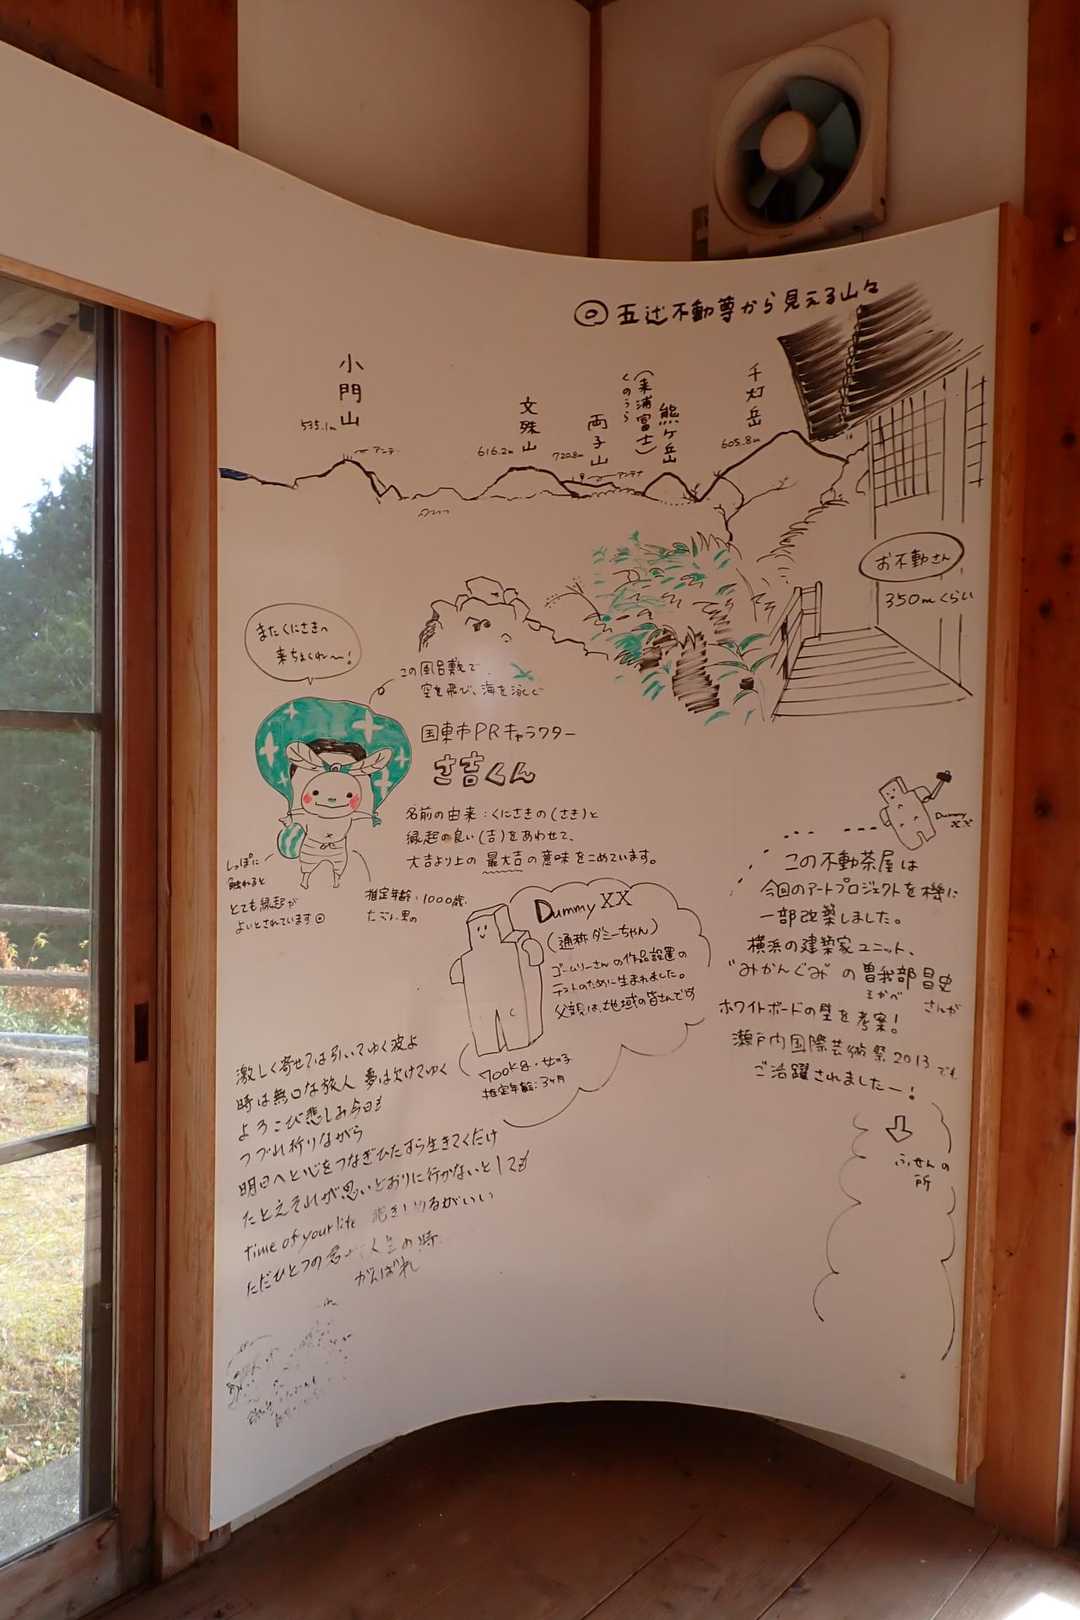 ◎ 五辻不動尊から見える山々
小門山
535.1m
アンテナ
文殊山
616.2m
両子山
720.8m
アンテナ
(来浦富士)
くのうら
熊ヶ岳
千灯岳
605.8m
お不動さん
350mくらい
またくにさきへ
来ちょくれ〜!
この風呂敷で
空を飛び、海を泳ぐ
国東市PRキャラクター
さ吉くん
名前の由来:くにさきの(さき)と
縁起の良い(吉)をあわせて、
大吉より上の 最大吉の意味をこめています。
しっぽに
触れると
とても縁起が
よいとされています
推定年齢・1000歳.
たぶん男の
Dummy XX
(通称ダミーちゃん)
ゴームリーさんの作品設置の
テストのために生まれました。
父親は、地域の皆さんです
700kg・女の子
推定年齢:3ヶ月
Dummy
XX
この不動茶屋は
今回のアートプロジェクトを機に
一部改築しました。
横浜の建築家ユニット、
"みかんぐみ"の曽我部昌史
そがべ さんが
ホワイトボードの壁を考案!
瀬戸内国際芸術祭2013でも
ご活躍されましたー!
⇩
ふせんの
所
激しく寄せては引いてゆく波よ
時は無口な旅人 夢は欠けてゆく
よろこび悲しみ今日も
つづれ折りながら
明日へと心をつなぎひたすら生きてくだけ
たとえそれが思いどおりに行かないとしても
time of your life
ただひとつの
がんばれ